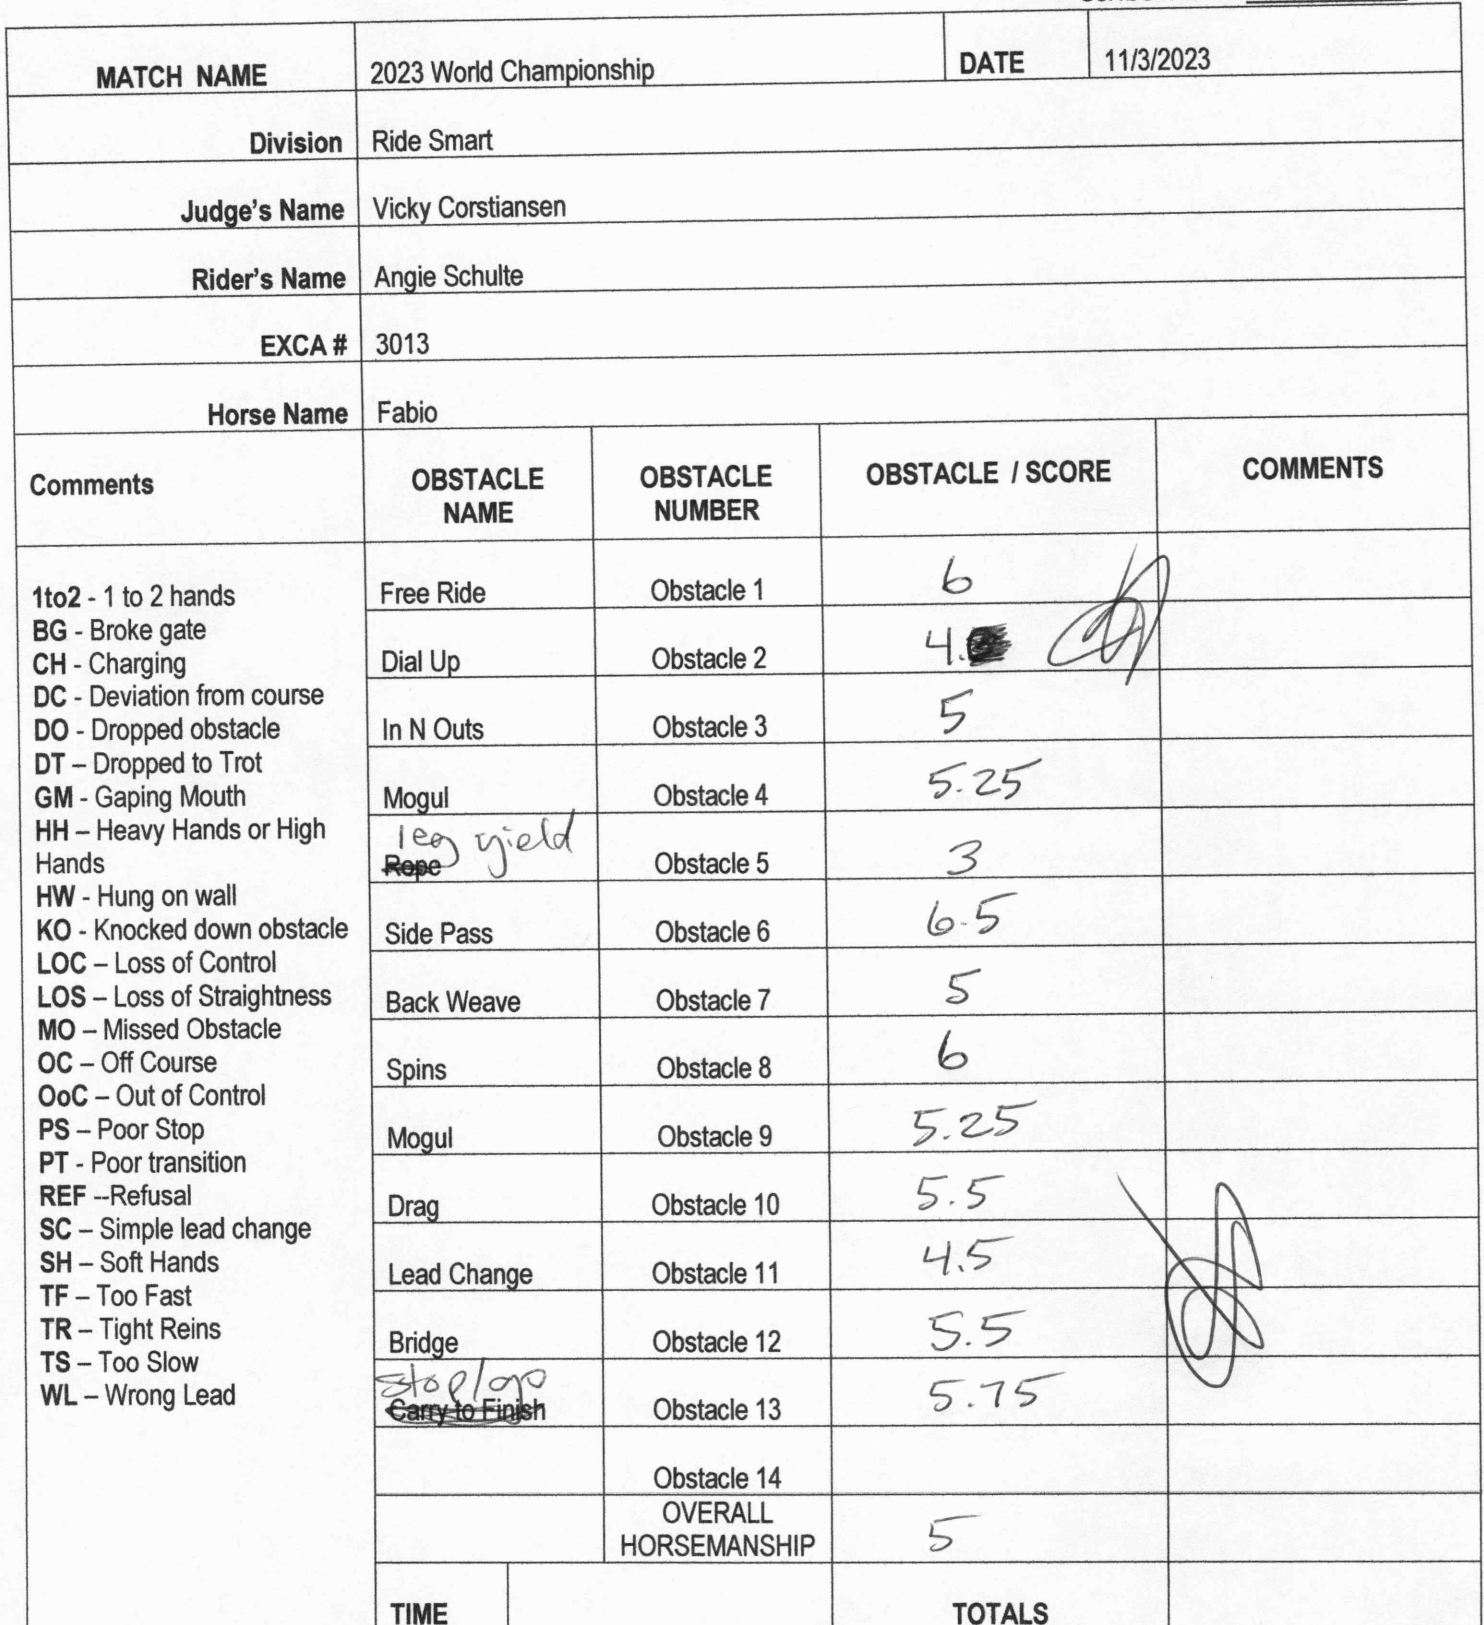 MATCH NAME 2023 World Championship DATE 11/3/2023
Division Ride Smart
Judge's Name Vicky Corstiansen
Rider's Name Angie Schulte
EXCA # 3013
Horse Name Fabio
Comments OBSTACLE NAME OBSTACLE NUMBER OBSTACLE / SCORE COMMENTS
1to2 - 1 to 2 hands
BG - Broke gate
CH - Charging
DC - Deviation from course
DO - Dropped obstacle
DT – Dropped to Trot
GM - Gaping Mouth
HH – Heavy Hands or High
Hands
HW - Hung on wall
KO - Knocked down obstacle
LOC – Loss of Control
LOS – Loss of Straightness
MO – Missed Obstacle
OC – Off Course
OoC – Out of Control
PS – Poor Stop
PT - Poor transition
REF --Refusal
SC – Simple lead change
SH – Soft Hands
TF – Too Fast
TR – Tight Reins
TS – Too Slow
WL – Wrong Lead
Free Ride Obstacle 1 6
Dial Up Obstacle 2 4.
In N Outs Obstacle 3 5
Mogul Obstacle 4 5.25
leg yield
Rope Obstacle 5 3
Side Pass Obstacle 6 6.5
Back Weave Obstacle 7 5
Spins Obstacle 8 6
Mogul Obstacle 9 5.25
Drag Obstacle 10 5.5
Lead Change Obstacle 11 4.5
Bridge Obstacle 12 5.5
stop/go
Carry to Finish Obstacle 13 5.75
Obstacle 14
OVERALL
HORSEMANSHIP 5
TIME TOTALS